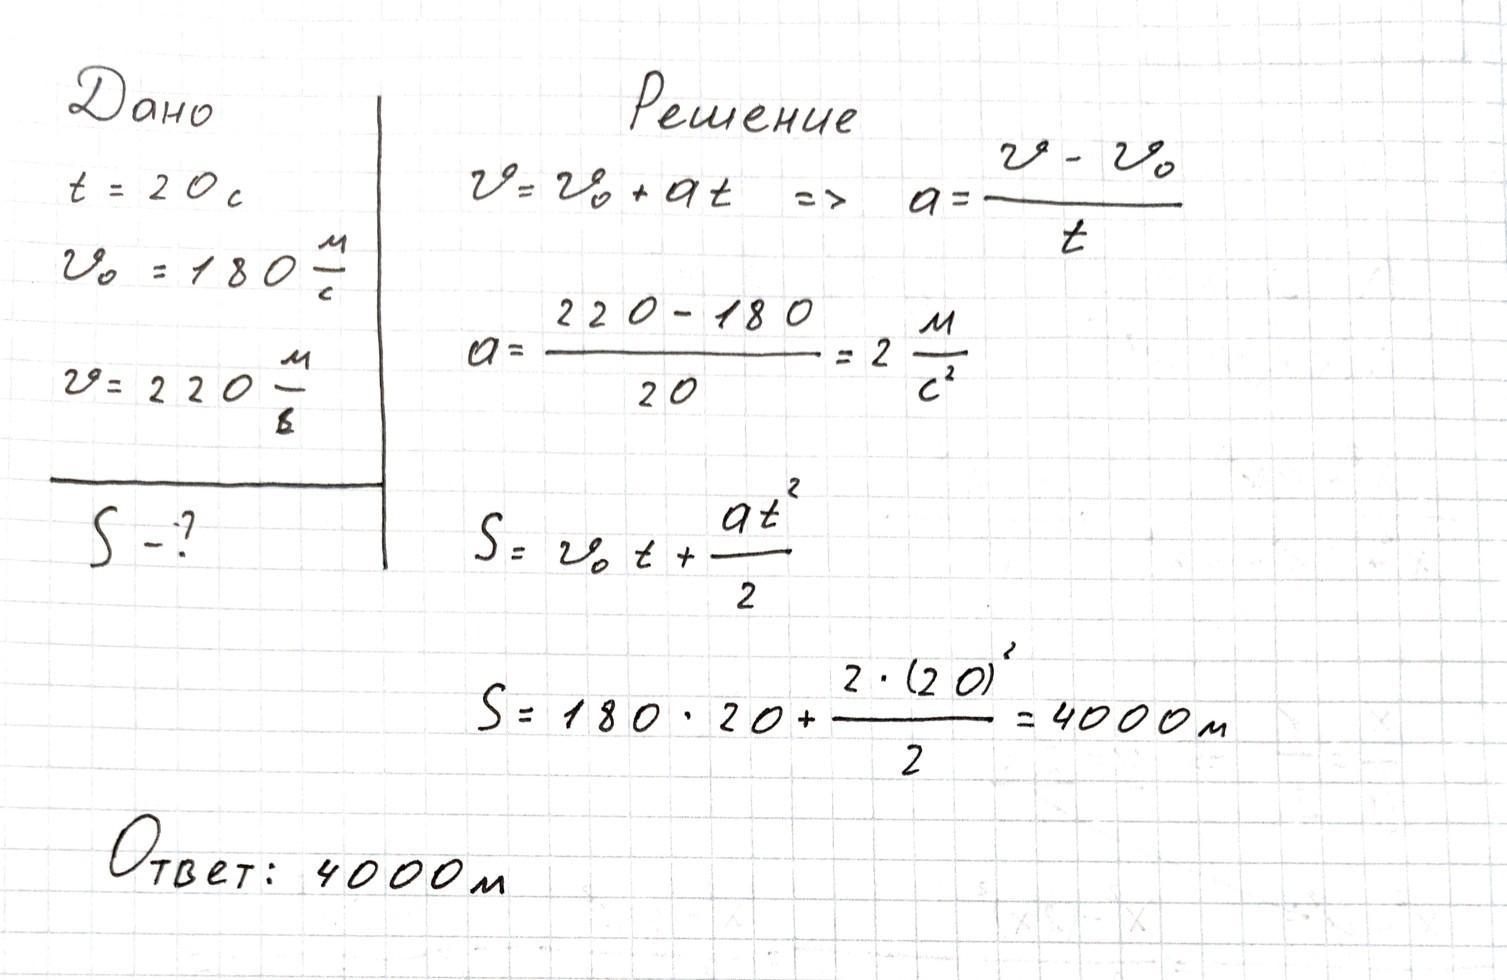 Дано
t = 20 с
v₀ = 180 м/с
v = 220 м/с
S - ?
Решение
v = v₀ + at => a = (v - v₀)/t
a = (220 - 180)/20 = 2 м/с²
S = v₀ t + at²/2
S = 180 · 20 + 2 · (20)²/2 = 4000 м
Ответ: 4000 м